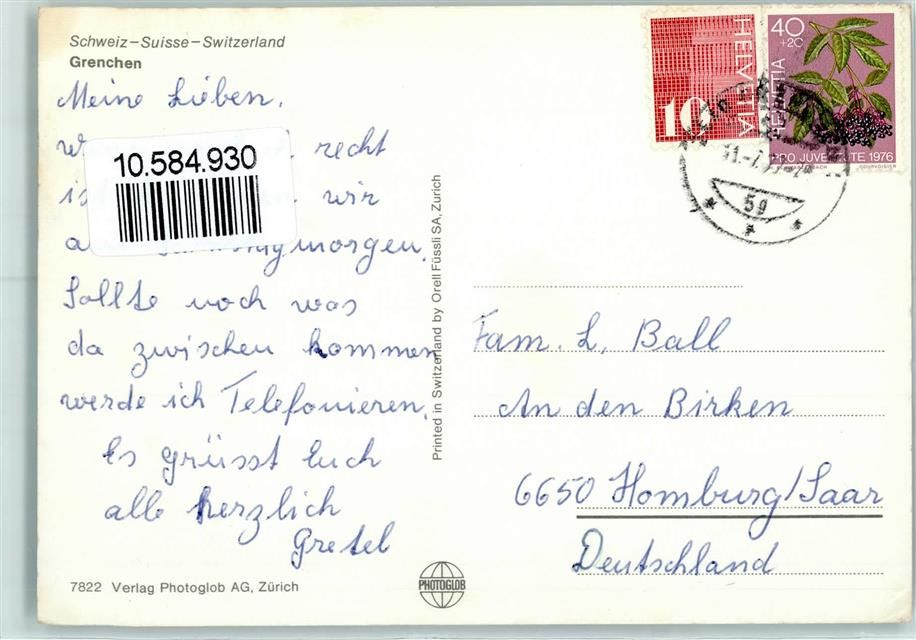 Schweiz–Suisse–Switzerland
Grenchen
Meine Lieben,
recht
wir
Sollte noch was
da zwischen kommen
werde ich Telefonieren.
Es grüsst Euch
alle herzlich
Gretel
10.584.930
7822 Verlag Photoglob AG, Zürich
PHOTOGLOB
Printed in Switzerland by Orell Füssli SA, Zürich
HELVETIA
10
40
+20
HELVETIA
PRO JUVENTUTE 1976
COURVOISIER
59
Fam. L. Ball
An den Birken
6650 Homburg/Saar
Deutschland